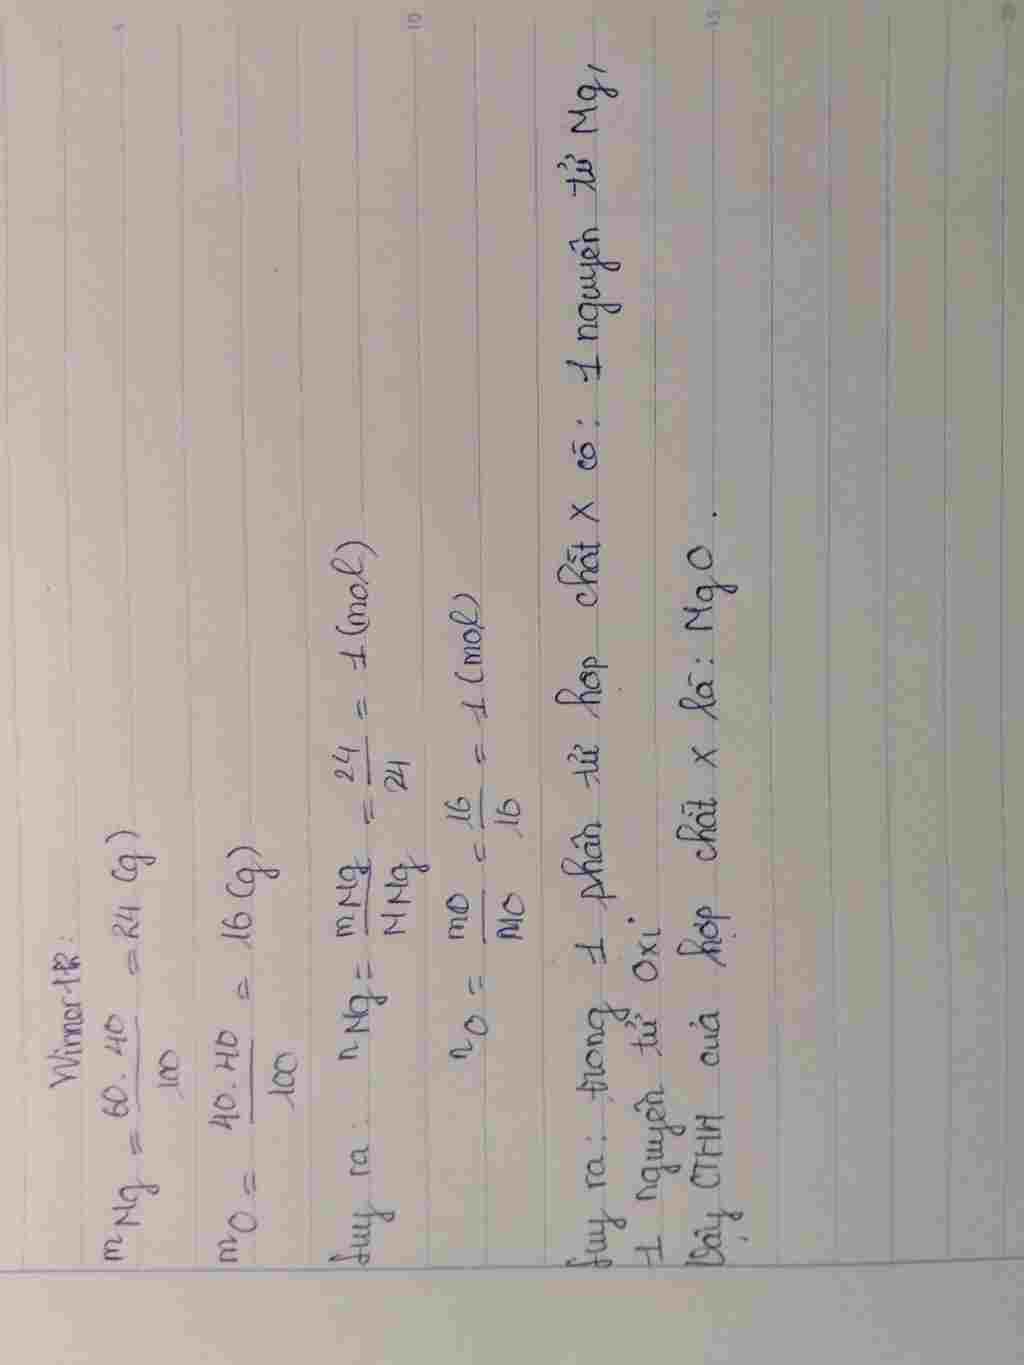 mMg = 60.40/100 = 24 (g)
mO = 40.40/100 = 16 (g)
Suy ra: nMg = mMg/MMg = 24/24 = 1 (mol)
nO = mO/MO = 16/16 = 1 (mol)
Suy ra: trong 1 phân tử hợp chất X có: 1 nguyên tử Mg,
1 nguyên tử Oxi.
Vậy CTHH của hợp chất X là: MgO.
5
10
15